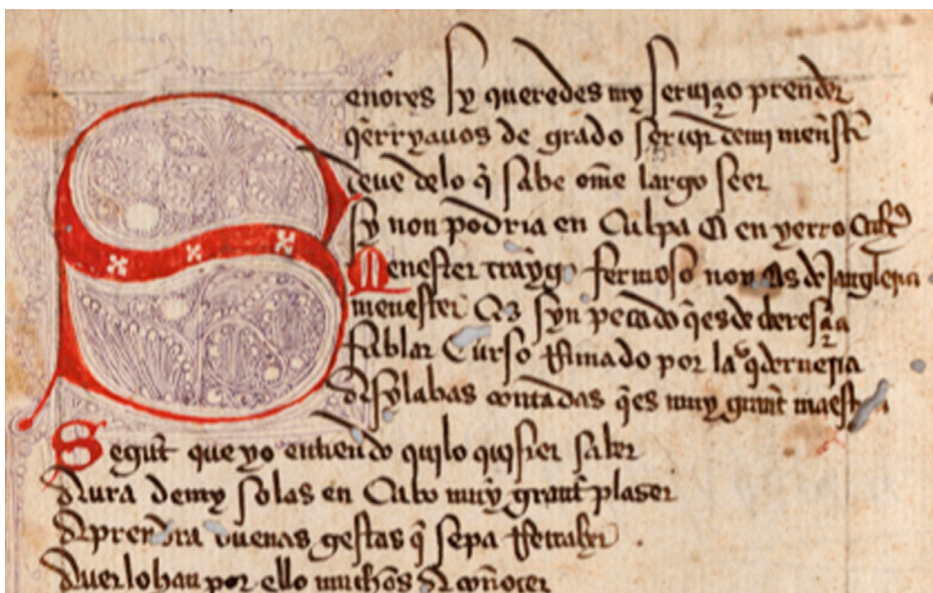 Señores sy queredes my seruiçio prender
q̃rryauos de grado seruir demi menster
deue delo q̃ sabe ome largo seer
sy non podria en culpa E en yerro
Menester traygo fermoso non es de jangleria
menester es syn pecado q̃es de deresia
fablar curso rrimado por la qderueria
a sylabas contadas q̃es muy grant maestria
Segunt que yo entiendo quilo quisier saber
Aura demy solas en cabo muy grant plaser
Aprendra buenas gestas q̃ sepa rretraher
Auer lo han por ello muchos a coñoçer